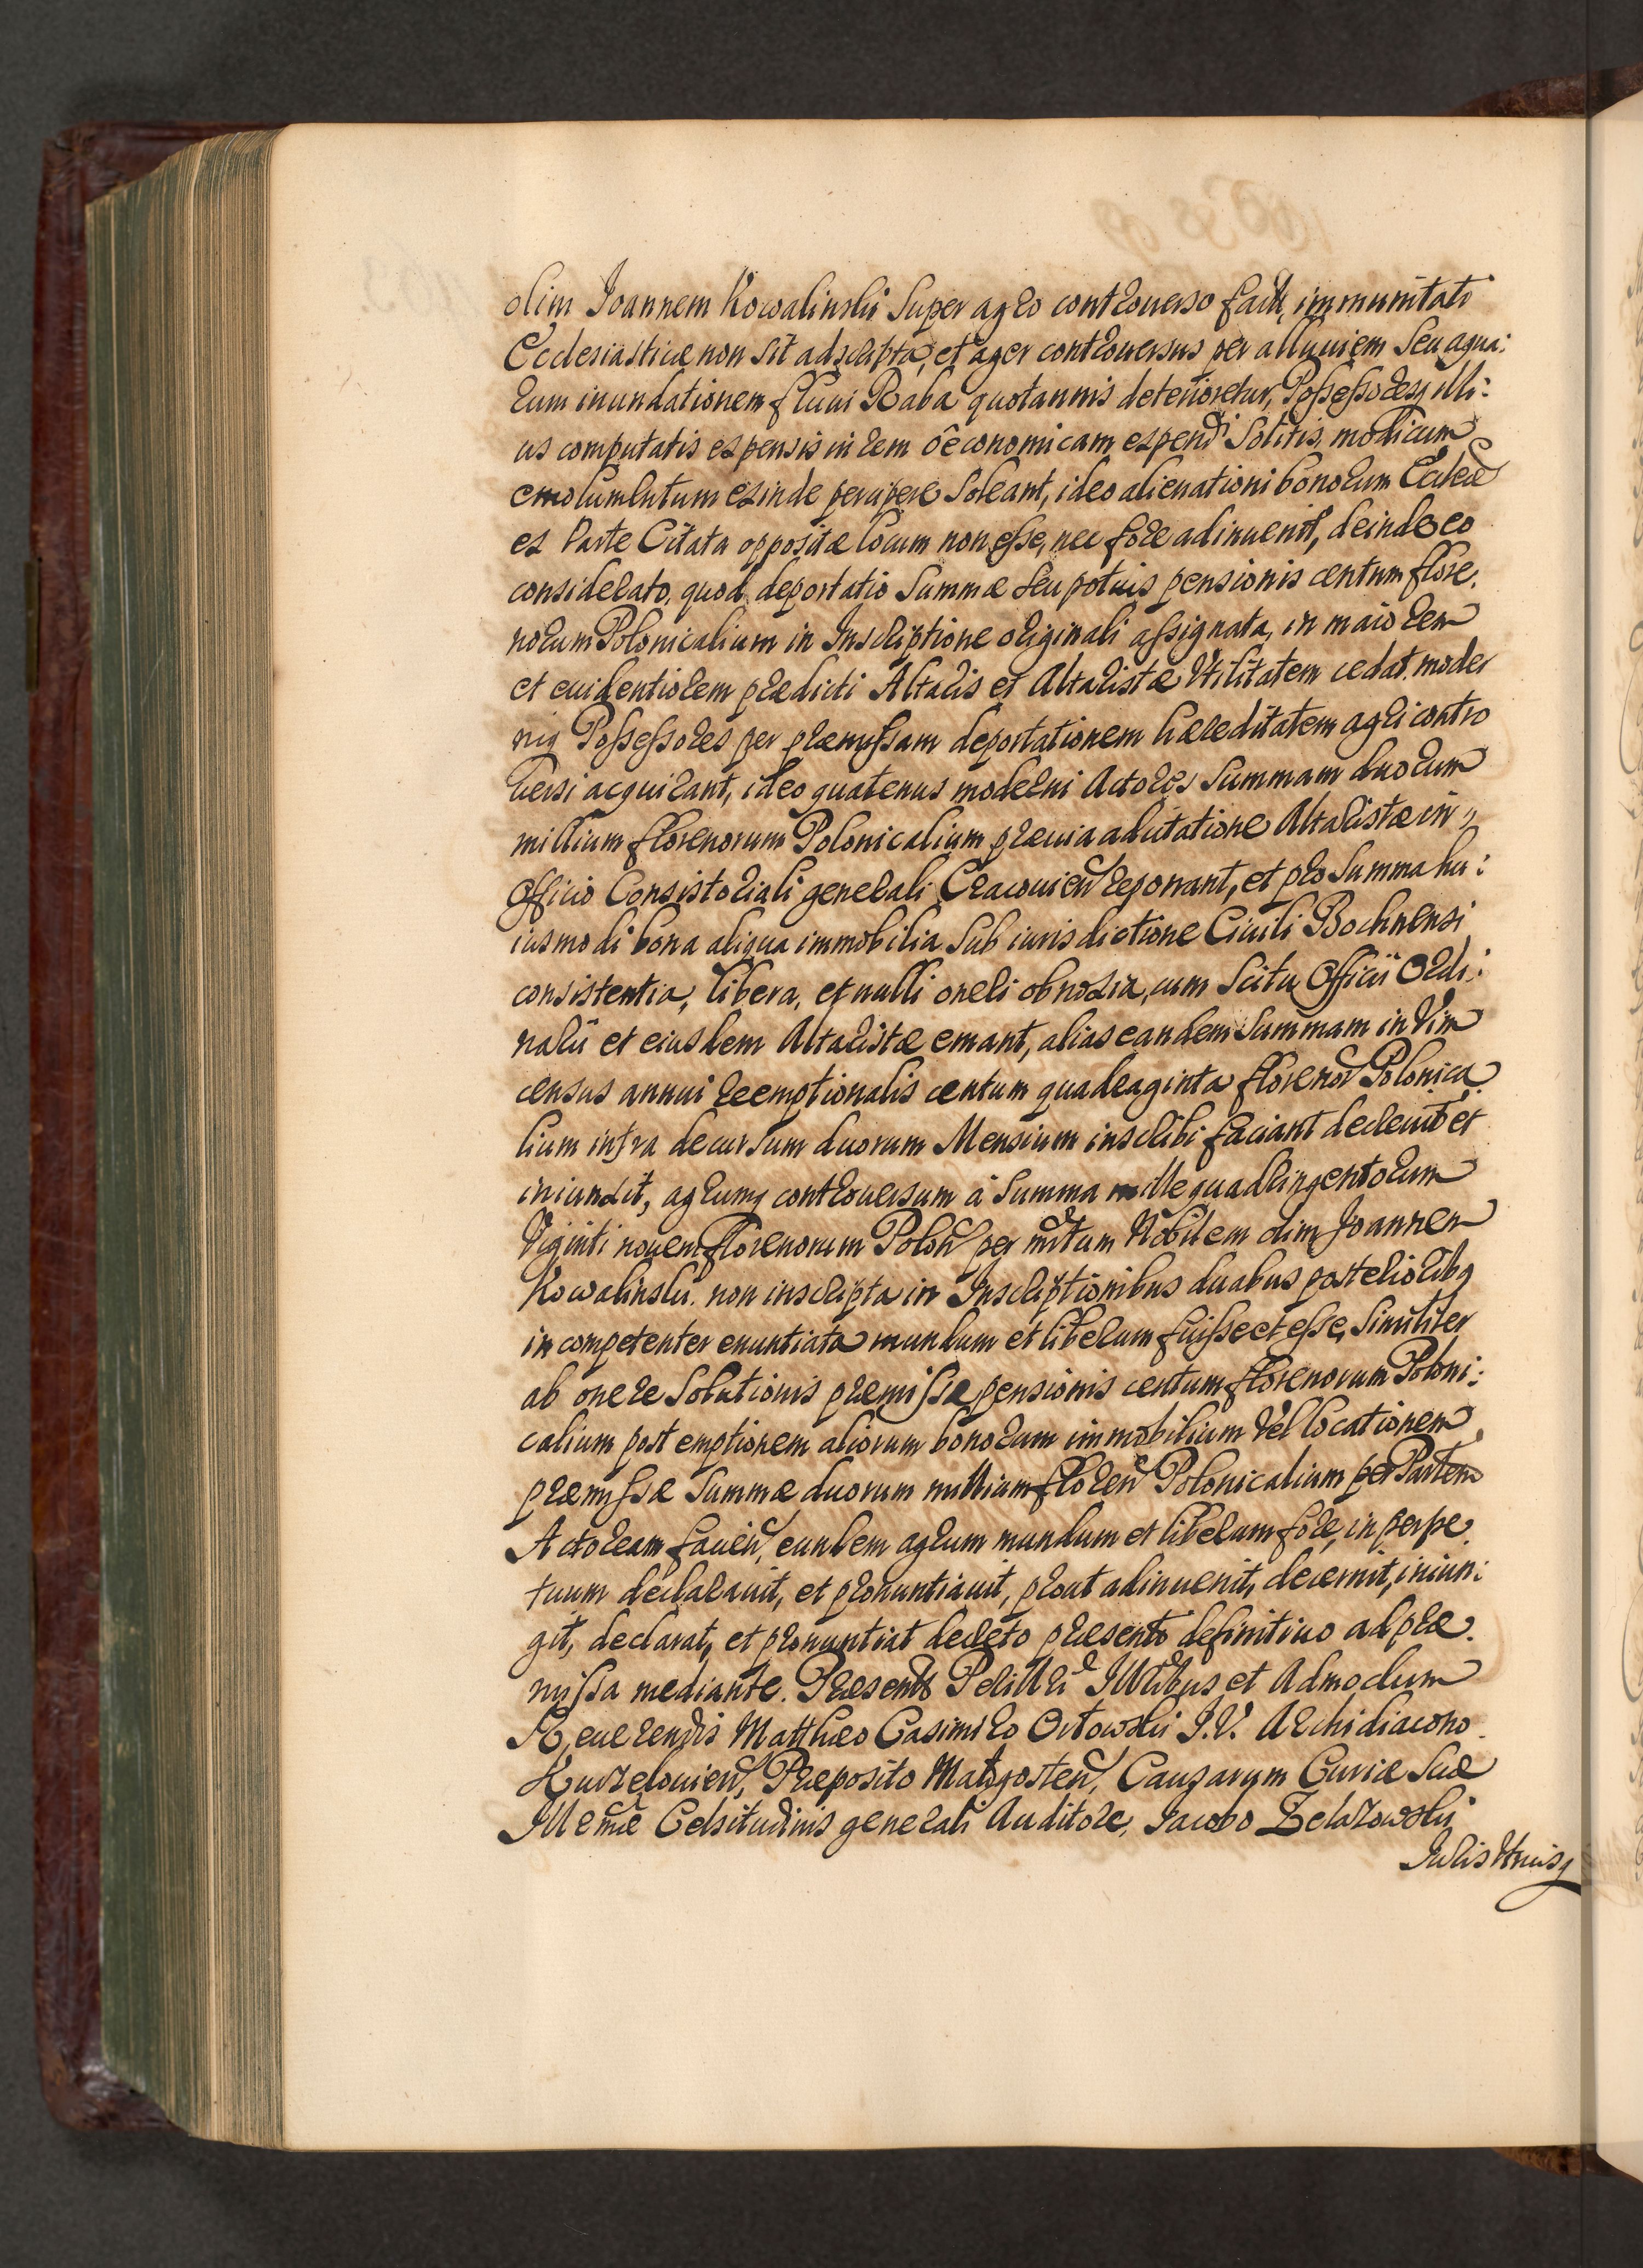 olim Joannem Kowalinski super agro controuerso facti, immunitati
Ecclesiasticæ non sit adscripta, et ager controuersus per alluuiem seu aqua:
rum inundationem fluui Raba quotannis deterioretur, Possessoresq illi:
us computatis expensis in rem oêconomicam expendi solitis, modicum
emolumentum exinde percipere soleant, ideo alienationi bonorum Eccleæ
ex Parte Citata oppositæ locum non esse, nec fore adinuenit, deinde eo
considerato, quod deportatio summæ seu potius pensionis centum flore.
norum Polonicalium in Inscriptione originali assignata, in maiorem
et euidentiorem prædicti Altaris et Altaristæ Vtilitatem cedat, moder
niq Possessores per præmissam deportationem hæreditatem agri contro
uersi acquirant, ideo quatenus moderni Actores summam duorum
millium florenorum Polonicalium præuia adcitatione Altaristæ in,,
Officio Consistoriali generali Cracouien reponant, et pro summa hu:
iusmodi bona aliqua immobilia sub iurisdictione Ciuili Bochnensi
consistentia, libera, et nulli oneri obnoxia, cum scitu Officii Ordi:
narii et eiusdem Altaristæ emant, alias eandem summam in Vim
census annui reemptionalis centum quadraginta floreno Polonica
lium infra decursum duorum Mensium inscribi faciant decreuit et
iniunxit, agrumq controuersum à summa mille quadringentorum
Viginti nouem florenorum Polon per Nobilem olim Joannem
Kowalinski non inscripta in Inscriptionibus duabus posterioribq
incompetenter enuntiata mundum et liberum fuisse et esse, similiter
ab onere solutionis præmissæ pensionis centum florenorum Poloni:
calium post emptionem aliorum bonorum immobilium vel locationem
præmissæ summæ duorum millium floren Polonicalium per Partem
Actoream fauen, eundem agrum mundum et liberum fore, in perpe
tuum declarauit, et pronuntiauit, prout adinuenit, decernit, iniun:
git, declarat, et pronuntiat decreto præsenti definitiuo ad præ.
missa mediante. Præsentb Perillri Illribus et Admodum
Reuerendis Matthæo Casimiro Ortowski J.V. Archidiacono
Kurzelouien, Præposito Causarum Curiæ suæ
Celsitudinis generali Auditore, Jacobo Zelazowski
Juris Vtriusq